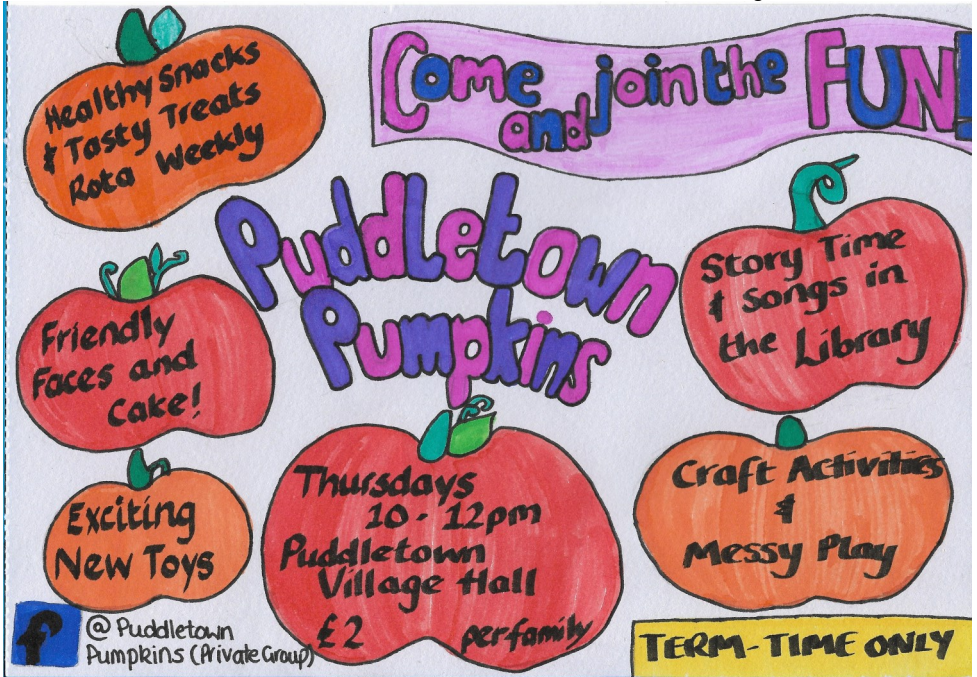 Healthy Snacks
& Tasty Treats
Rota Weekly
Come
and join the FUN!
Puddletown
Pumpkins
Story Time
& Songs in
the Library
Friendly
Faces and
Cake!
Exciting
New Toys
Thursdays
10 - 12pm
Puddletown
Village Hall
£2 per family
Craft Activities
&
Messy Play
f
@ Puddletown
Pumpkins (Private Group)
TERM-TIME ONLY